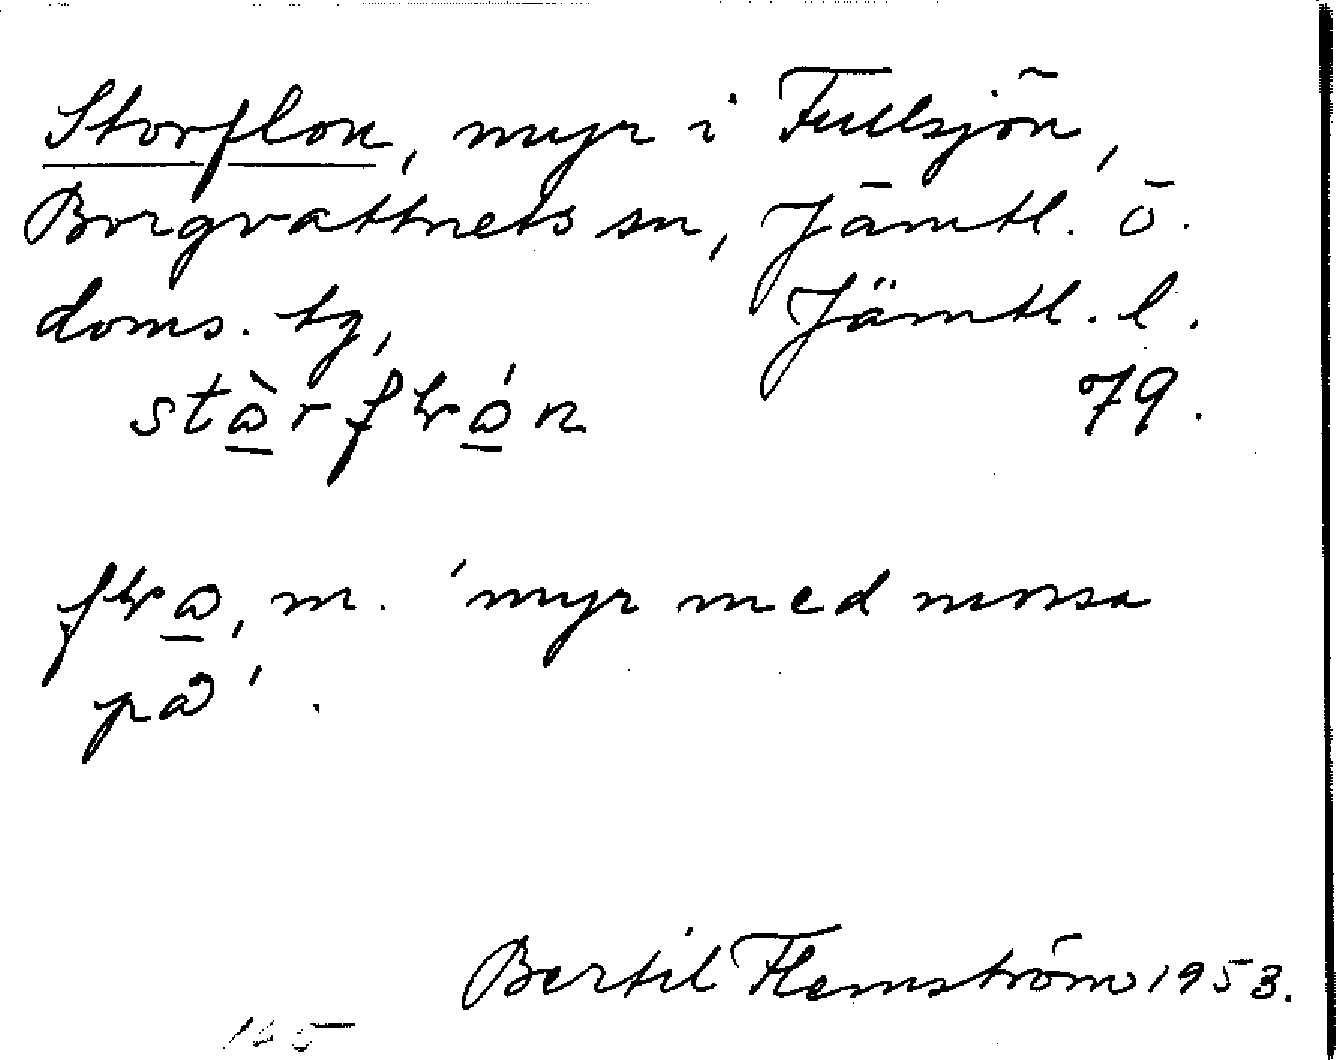 Storflon, myr i Fullsjön,
Borgvattnets sn, Jämtl. ö.
doms. tg, Jämtl. l.
79.
m. 'myr med mossa
på'.
Bertil Flemström 1953.
145